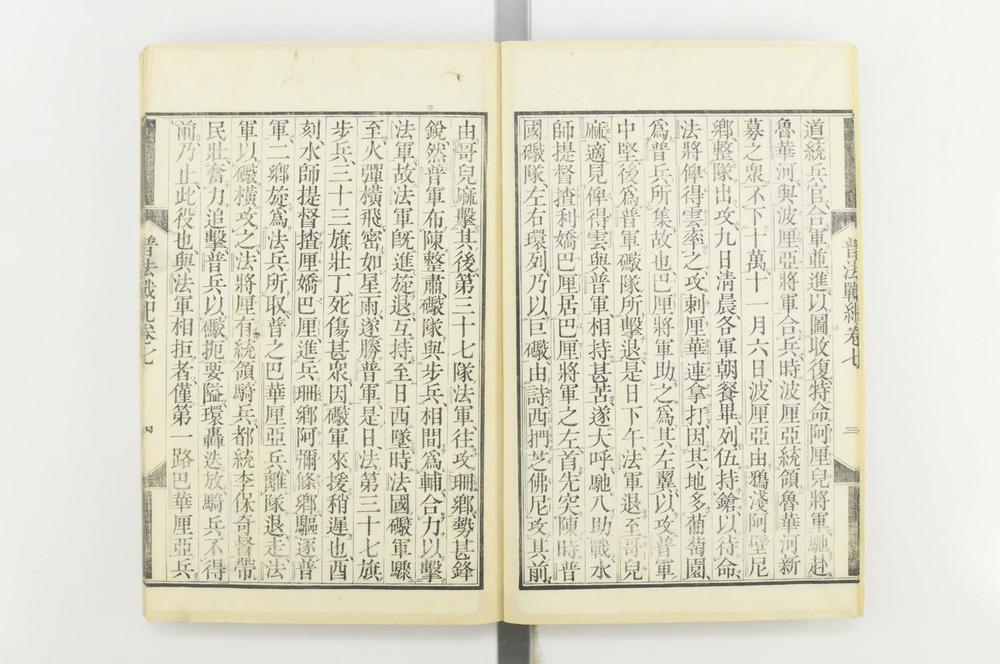 道統兵官合軍並進以圖收復特命阿厘兒將軍馳赴
魯華河與波厘亞將軍合兵時波厘亞統領魯華河新
募之衆不下十萬十一月六日波厘亞由鴉淺阿壁尼
鄉整隊出攻九日淸晨各軍朝餐畢列伍持鎗以待命
法將俾得雲率之攻剌厘華連拿打因其地多葡萄園
爲普兵所集故也巴厘將軍助之爲其左翼以攻普軍
中堅後爲普軍礮隊所擊退是日下午法軍退至哥兒
麻適見俾得雲與普軍相持甚苦遂大呼馳八助戰水
師提督揸利嬌巴厘居巴厘將軍之左首先突陳時普
國礮隊左右環列乃以巨礮由詩西捫芝佛尼攻其前
普法戰紀卷七
三
由哥兒麻擊其後第三十七隊法軍往攻珊鄉勢甚鋒
銳然普軍布陳整肅礮隊與步兵相間爲輔合力以擊
法軍故法軍旣進旋退互持至日西墜時法國礮軍驟
至火彈橫飛密如星雨遂勝普軍是日法第三十七旗
步兵三十三旗壯丁死傷甚衆因礮軍來援稍遲也酉
刻水師提督揸厘嬌巴厘進兵珊鄉阿彌條鄉驅逐普
軍二鄉旋爲法兵所取普之巴華厘亞兵離隊退走法
軍以礮橫攻之法將厘有統領騎兵都統李保奇督帶
民壯奮力追擊普兵以礮扼要隘環轟迭放騎兵不得
前乃止此役也與法軍相拒者僅第一路巴華厘亞兵
普法戰紀卷七
四